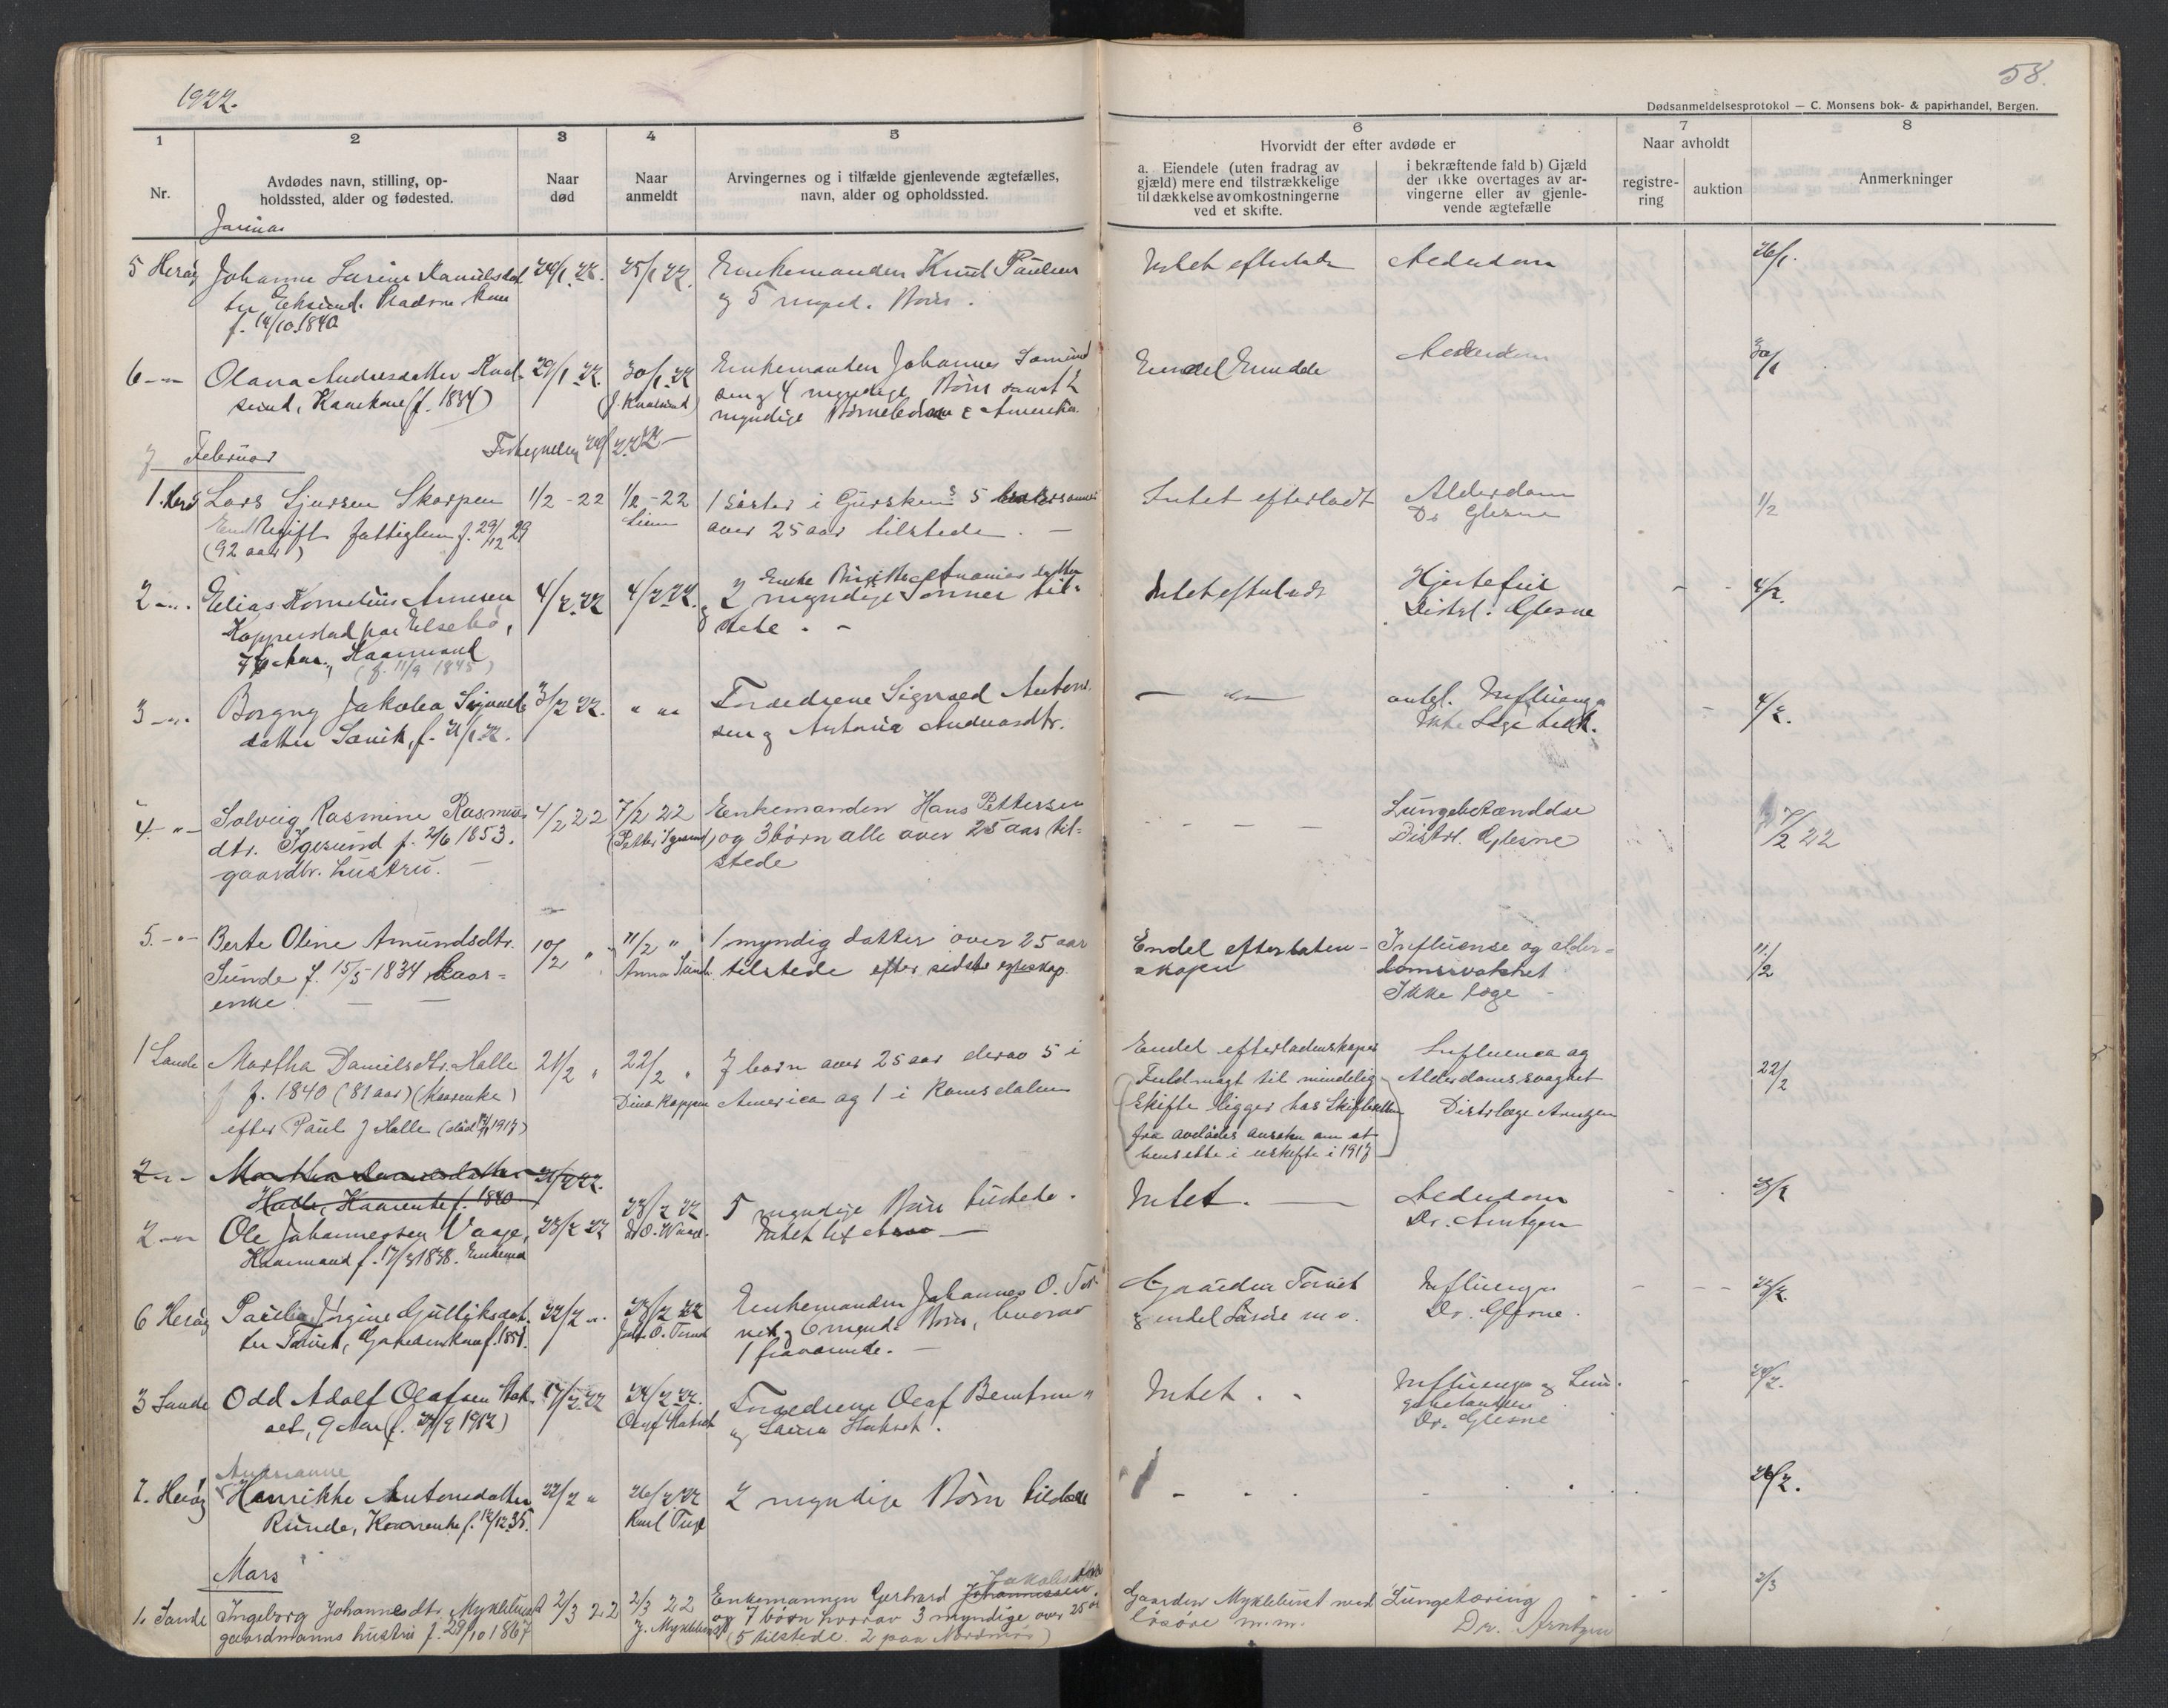 1922.
58.
Dødsanmeldelsesprotokol — C. Monsens bok- & papirhandel, Bergen.
1
Nr.
2
Avdødes navn, stilling, op-
holdssted, alder og fødested.
3
Naar
død
4
Naar
anmeldt
5
Arvingernes og i tilfælde gjenlevende ægtefælles,
navn, alder og opholdssted.
6
Hvorvidt der efter avdøde er
a. Eiendele (uten fradrag av
gjæld) mere end tilstrækkelige
til dækkelse av omkostningerne
ved et skifte.
i bekræftende fald b) Gjæld
der ikke overtages av ar-
vingerne eller av gjenle-
vende ægtefælle
7
Naar avholdt
registre-
ring
auktion
8
Anmerkninger
Januar
5 Herøy Johanne Larine Danielsdat
ter
f. 14/10.1840
24/1.22.
25/1 22.
Enkemanden Knut Paulsen
og 5 mynd. Børn.
Intet efterladt
Alderdom
26/1.
6 -"- Olava Andresdatter Kval-
sund, Kaarkone (f. 1834)
29/1.22
30/1.22
(J. Kvalsund)
Enkemanden Johannes
sen og 4 myndige Børn samt 2
myndige Børnebørn i Amerika.
Endel
Alderdom
30/1
Februar
1. Herø Lars Sjursen Skorpen
Ugift fattiglem f. 29/12 29
(92 aar)
1/2 - 22
1/2 - 22
1 søster i Gursken & 5
over 25 aar tilstede. —
Intet efterladt
Alderdom
Dr Glesne
1/2
2 -"- Elias Kornelius Arnesen
Kopperstad paa Elsebø,
76 Aar, Kaarmand
(f. 11/9 1845)
4/2.22
4/2 22.
Enke Birgitte Ananiasdatter
og 2 myndige Sønner til-
stede. -
Intet efterladt
Hjertefeil
Distrl. Glesne
4/2.
3 -"- Borgny Jakobea Sigvalds
datter Sævik, f. 21/1 22.
3/2 22.
" "
Forældrene Sigvald Anton-
sen og Antonia Andreasdtr.
— " —
antal. Influenza
Ikke Læge
4/2.
4. -"- Solveig Rasmine Rasmus
dtr. Igesund f. 2/6 1853.
gaardbr. hustru. —
4/2 22
7/2 22
(Petter Igesund)
Enkemanden Hans Pettersen
og 3 børn alle over 25 aar til-
stede
Lungebetændelse
Distrl. Glesne
7/2 22
5. -"- Berte Oline Amundsdtr.
Sunde f. 15/5 1834 Kaar-
enke
10/2 "
11/2 "
Anna Sunde
1 myndig datter over 25 aar
tilstede efter sidste egteskap.
Endel efterlaten-
skaper
Influense og alder-
domssvakhet
Ikke læge -
11/2
1 Sande Martha Danielsdtr. Halle
f. 1840 (81 aar) (Kaarenke)
efter Paul J Halle (død 1917)
21/2 "
22/2 "
Dina Koppen
7 børn over 25 aar derav 5 i
America og 1 i Romsdalen
Endel efterladenskaper
Fuldmagt til mindelig
Skifte ligger hos Skifteretten
fra avdødes ansøkn om at
hensitte i uskifte i 1917
Influenza og
Alderdomssvaghet
Distrlæge Arntzen
22/2
2 -"- Martha Danielsdatter
Halle, Kaarenke f. 1840
21/2 22.
2 -"- Ole Johannessen Vaage,
Kaarmand f. 17/3 1838. Enkemand
23/2 22
23/2 22
5 myndige Børn tilstede.
Intet.
Alderdom
Dr. Arntzen
23/2
6 Herøy Paulia Jørgine Gulliksdat
ter Tarvik, Gaardm.kone f. 1851.
22/2 "
23/2 22
Enkemanden Johannes O. Tar-
vik og 6 mynd. Børn, hvorav
1 fraværende. —
Gaarden Tarvik
og endel Løsøre m.v.
Influenza
Dr. Glesne.
23/2.
3 Sande Odd Adolf Olafsen Hak-
nes, 9 Aar (f. 24/9 1912)
17/2.22
24/2 22.
Forældrene Olaf Berntsen
og Laura
Intet. -
Influenza og Lun-
gebetændelse
Dr. Glesne
24/2.
7. Herøy Andrianne
Henrikke Antonsdatter
Runde, Kaarenke f. 12/12 35.
22/2 "
26/2 22
2 myndige Børn tilstede
26/2.
Mars
1. Sande Ingeborg Johannesdtr. Myklebust
gaardmanns hustru f. 29/10 1867
2/3 22
2/3 22
J. Myklebust
Enkemannen Gerhard Johannessen Jakobsen
og 7 børn hvorav 3 myndige over 25 år
(5 tilstede. 2 paa Nordmøre)
Gaarden Myklebust med
løsøre m.m.
Lungetæring
Dr. Arntzen
2/3